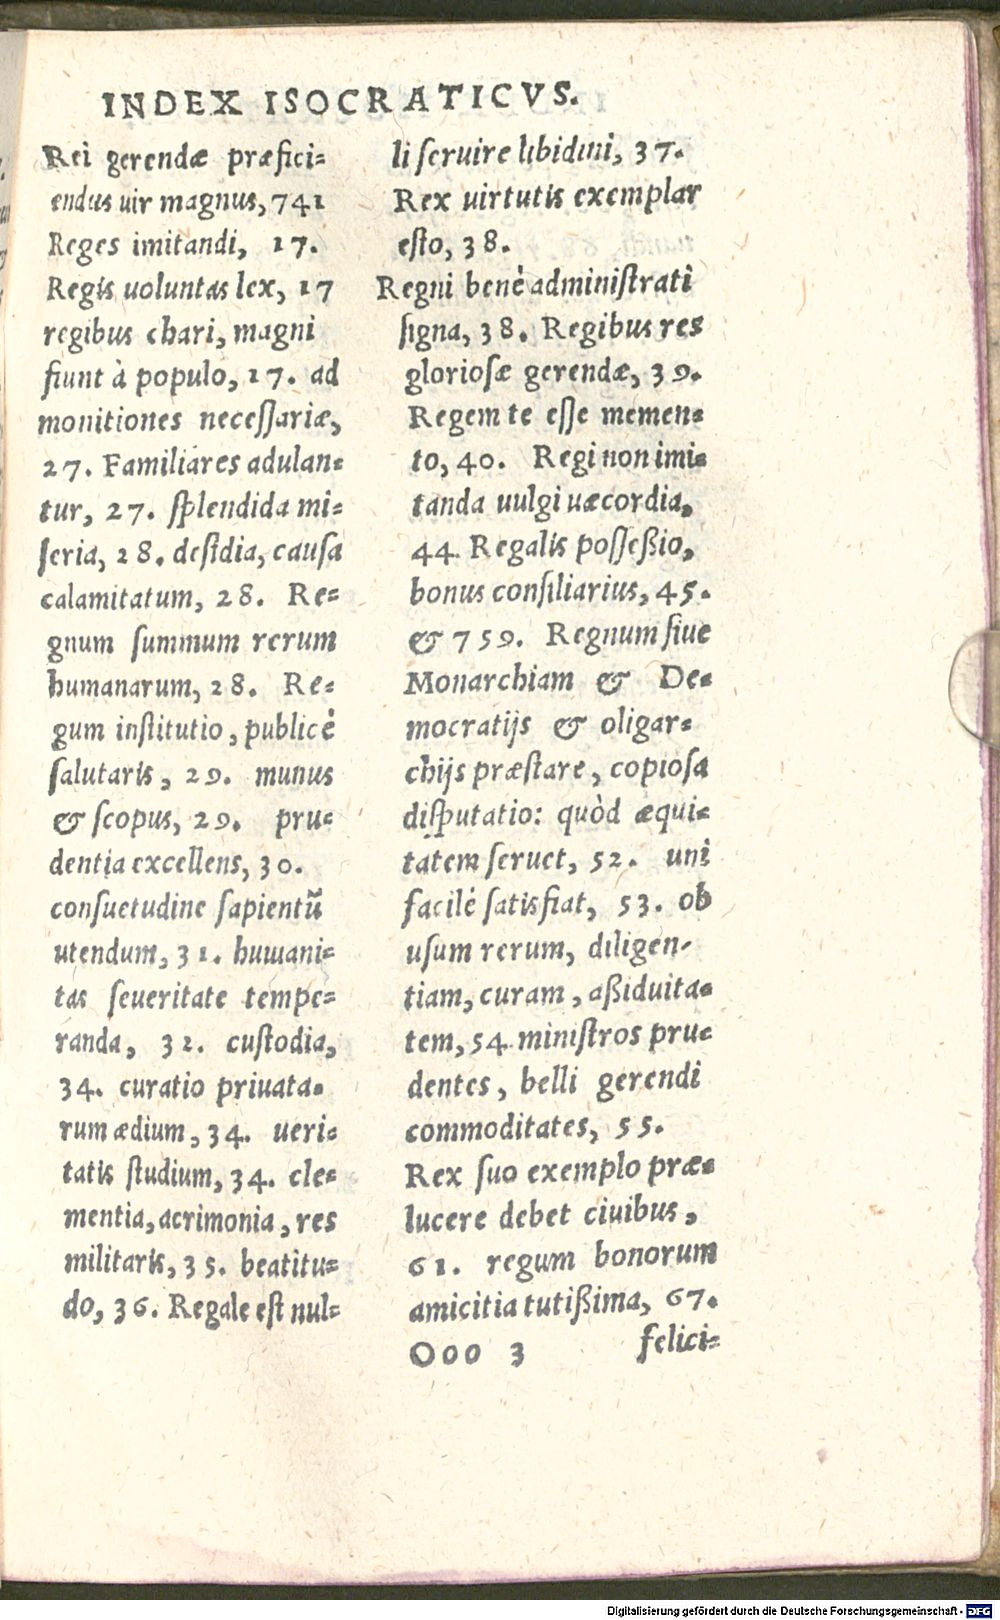 INDEX ISOCRATICVS.
Rei gerendæ præfici=
endus uir magnus, 741
Reges imitandi, 17.
Regis uoluntas lex, 17
regibus chari, magni
fiunt à populo, 17. ad
monitiones necessariæ,
27. Familiares adulan=
tur, 27. splendida mi=
seria, 28. desidia, causa
calamitatum, 28. Re=
gnum summum rerum
humanarum, 28. Re=
gum institutio, publicè
salutaris, 29. munus
& scopus, 29. pru=
dentia excellens, 30.
consuetudine sapientũ
utendum, 31. humani=
tas seueritate tempe=
randa, 32. custodia,
34. curatio priuata=
rum ædium, 34. ueri=
tatis studium, 34. cle=
mentia, acrimonia, res
militaris, 35. beatitu=
do, 36. Regale est nul=
li seruire libidini, 37.
Rex uirtutis exemplar
esto, 38.
Regni benè administrati
signa, 38. Regibus res
gloriosæ gerendæ, 39.
Regem te esse memen=
to, 40. Regi non imi=
tanda uulgi uæcordia,
44. Regalis possessio,
bonus consiliarius, 45.
& 759. Regnum siue
Monarchiam & De=
mocratijs & oligar=
chijs præstare, copiosa
disputatio: quòd æqui=
tatem seruet, 52. uni
facilè satisfiat, 53. ob
usum rerum, diligen=
tiam, curam, aßiduita=
tem, 54. ministros pru=
dentes, belli gerendi
commoditates, 55.
Rex suo exemplo præ=
lucere debet ciuibus,
61. regum bonorum
amicitia tutißima, 67.
Ooo 3 felici=
Digitalisierung gefördert durch die Deutsche Forschungsgemeinschaft - DFG